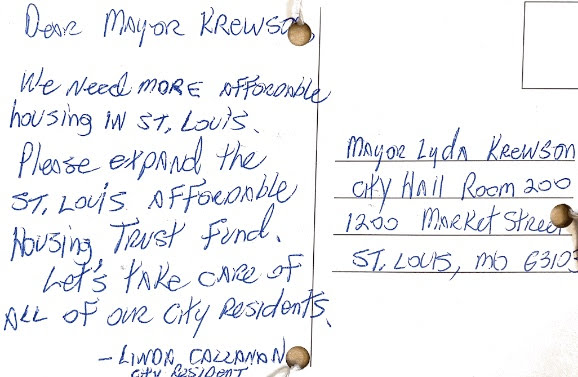 Dear Mayor Krewson,
We need more affordable
housing in St. Louis.
Please expand the
St. Louis Affordable
Housing Trust Fund.
Let's take care of
all of our city residents.
- Linda Callahan
city resident
Mayor Lyda Krewson
City Hall Room 200
1200 Market Street
St. Louis, MO 63103